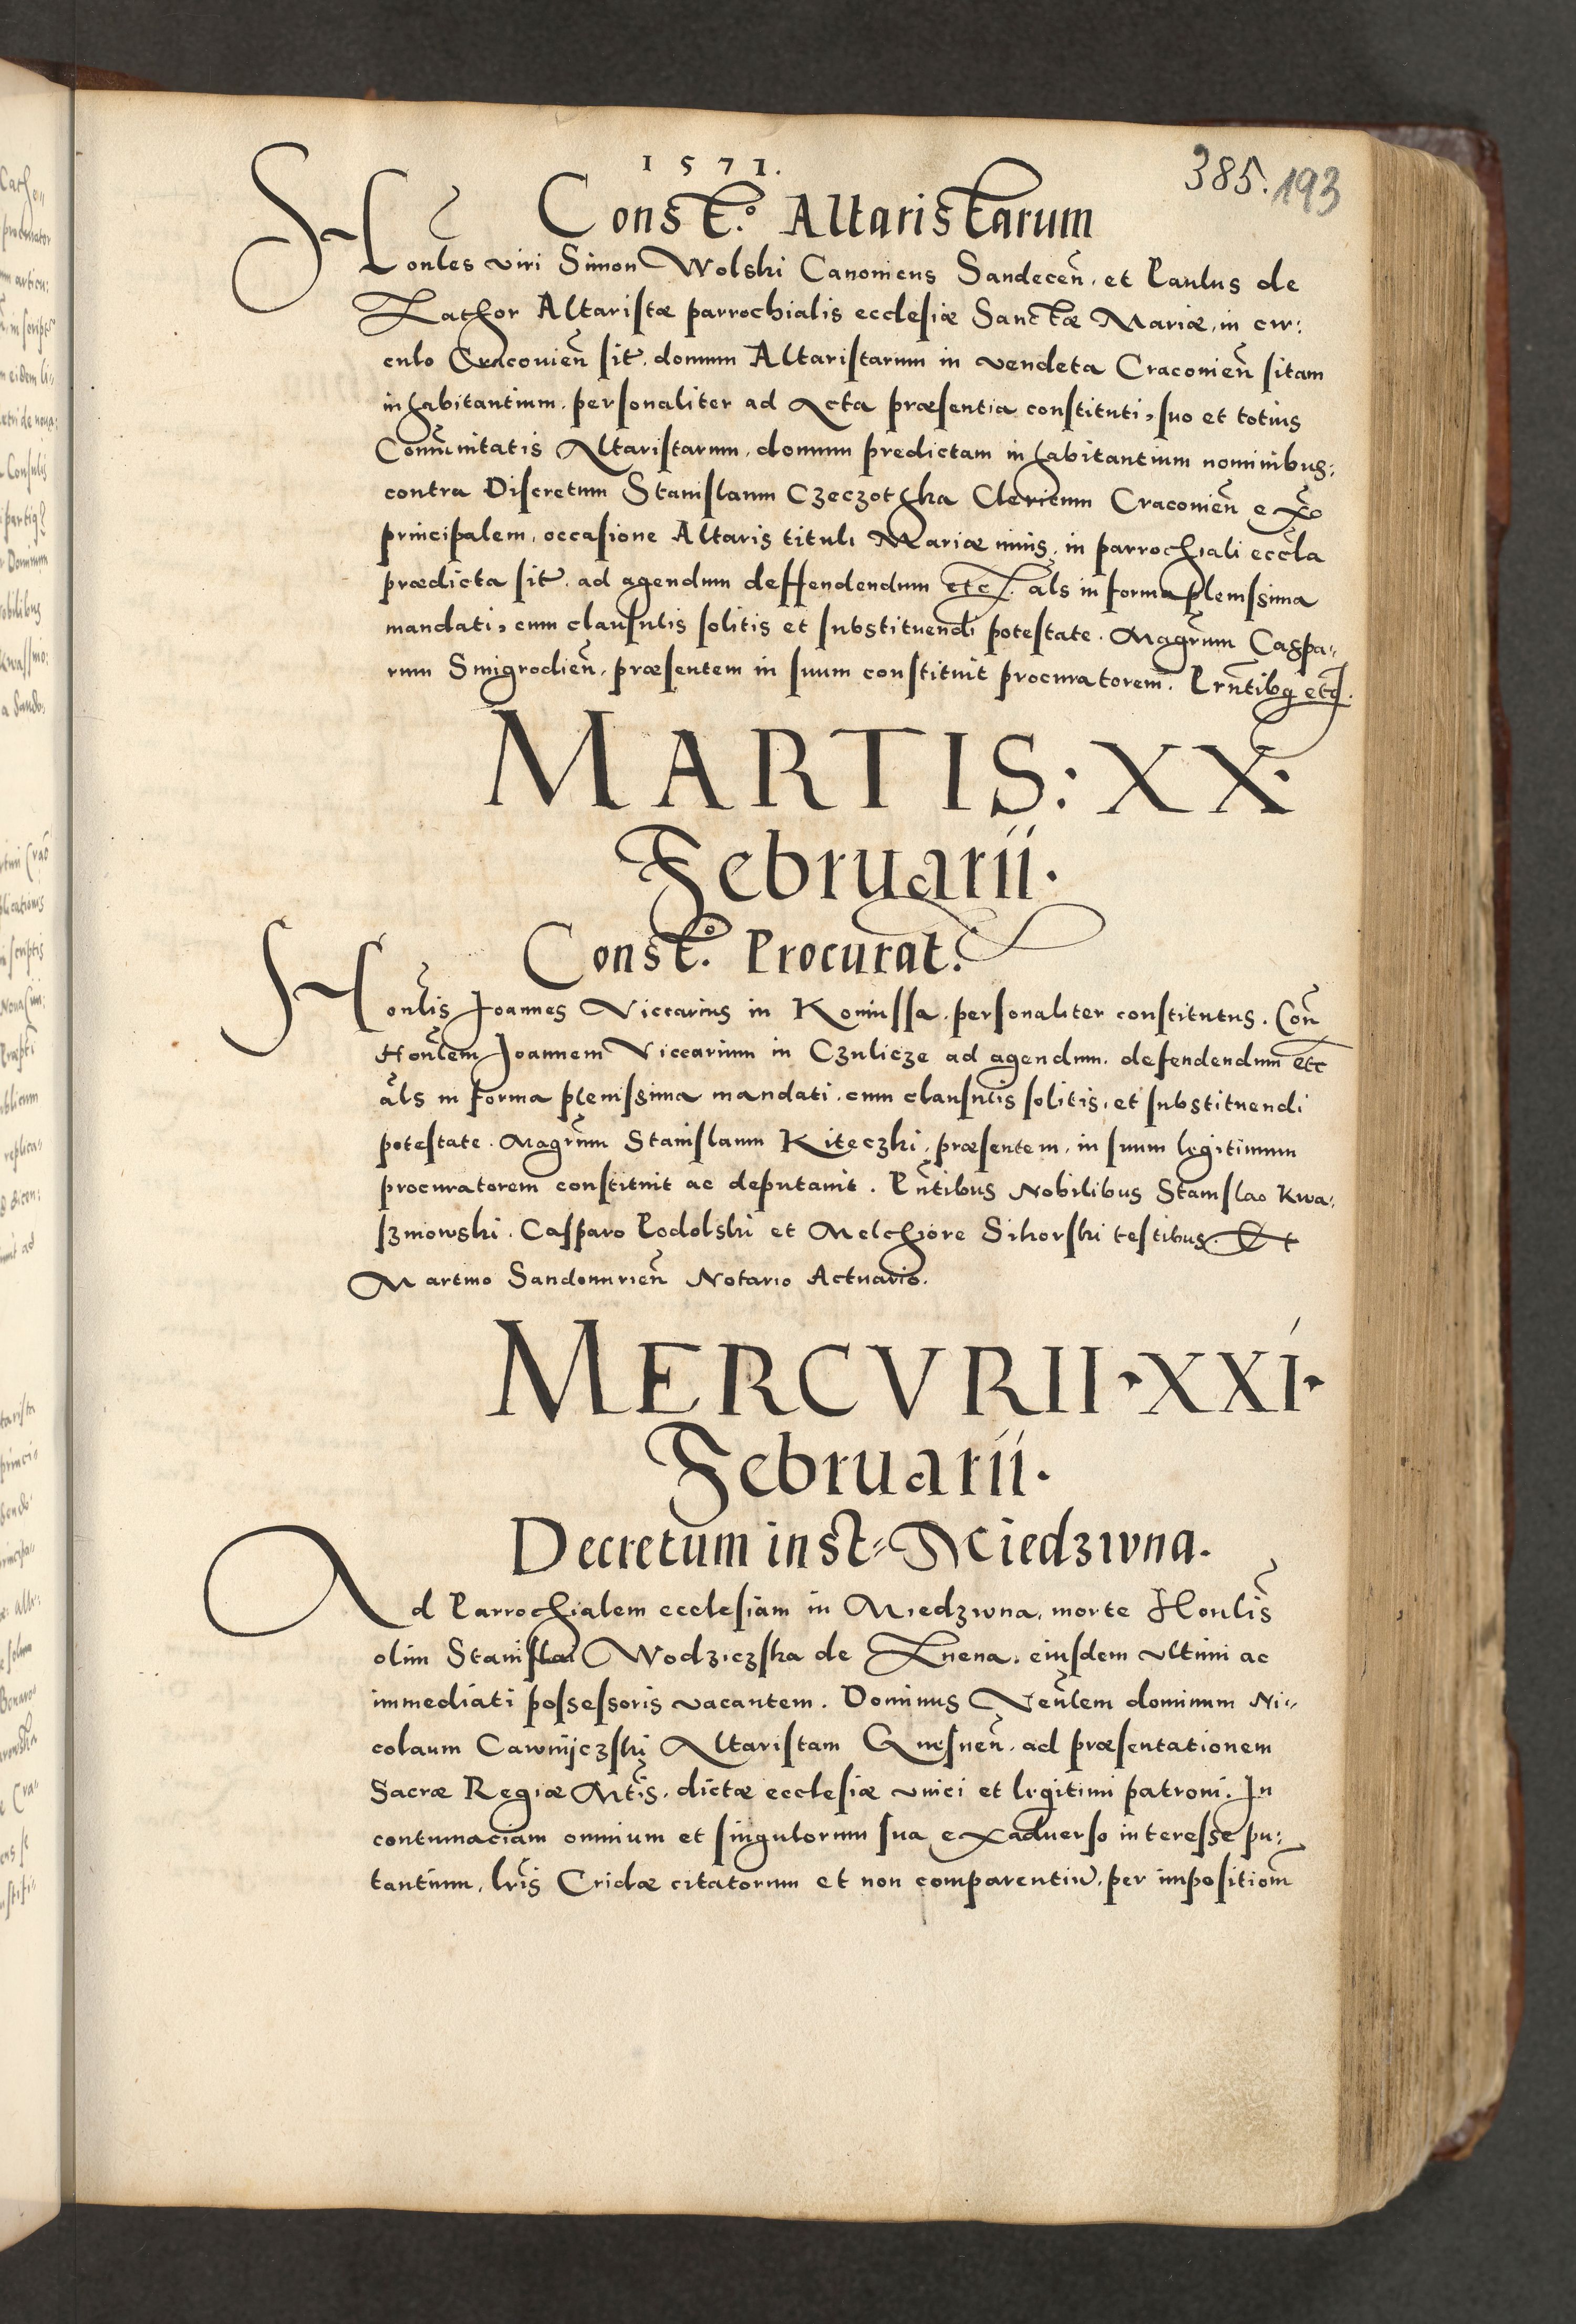 1571.
385. 193
Const.º Altaristarum
Honles viri Simon Wolski Canonicus Sandeceñ. et Paulus de
Zathor Altaristæ parrochialis ecclesiæ Sanctæ Mariæ, in cir:
culo Cracovieñ sit. domum Altaristarum in vendeta Cracovieñ sitam
inhabitantium. personaliter ad Acta præsentia constituti, suo et totius
Comũnitatis Altaristarum, domum predictam inhabitantium nominibus:
contra Discretum Stanislaum Czeczothka Clericum Cracovieñ ex
principalem, occasione Altaris tituli Mariæ nivis, in parrochiali eccla
prædicta sit. ad agendum deffendendum etc. als in forma plenissima
mandati, cum clausulis solitis et substituendi potestate. Magrum Caspa„
rum Smigrodieñ, præsentem in suum constituit procuratorem. Prñtibq etc.
MARTIS: XX.
Februarii.
Const.º Procurat.
Honlis Joannes Viccarius in Koniussa. personaliter constitutus. Coñ
Honlem Joannem Viccarium in Czulicze ad agendum. defendendum etc
als in forma plenissima mandati. cum clausulis solitis, et substituendi
potestate. Magrum Stanislaum Kiteczki, præsentem, in suum legitimum
procuratorem constituit ac deputavit. Pñtibus Nobilibus Stanislao Kwa:
szniowski. Casparo Podolski et Melchiore Sikorski testibus. Et
Martino Sandomirieñ Notario Actuario.
MERCVRII. XXI.
Februarii.
Decretum inst= Miedzwna.
Ad Parrochialem ecclesiam in Miedzwna, morte Honlis
olim Stanislai Wodziczska de Znena. eiusdem ultimi ac
immediati possessoris vacantem. Dominus Venlem dominum Ni„
colaum Cawnijczski Altaristam Gnesneñ. ad præsentationem
Sacræ Regiæ Mtis. dictæ ecclesiæ unici et legitimi patroni. In
contumaciam omnium et singulorum sua exadverso interesse pu:
tantium, lris Cridæ citatorum et non comparentiũ. per impositiom̃